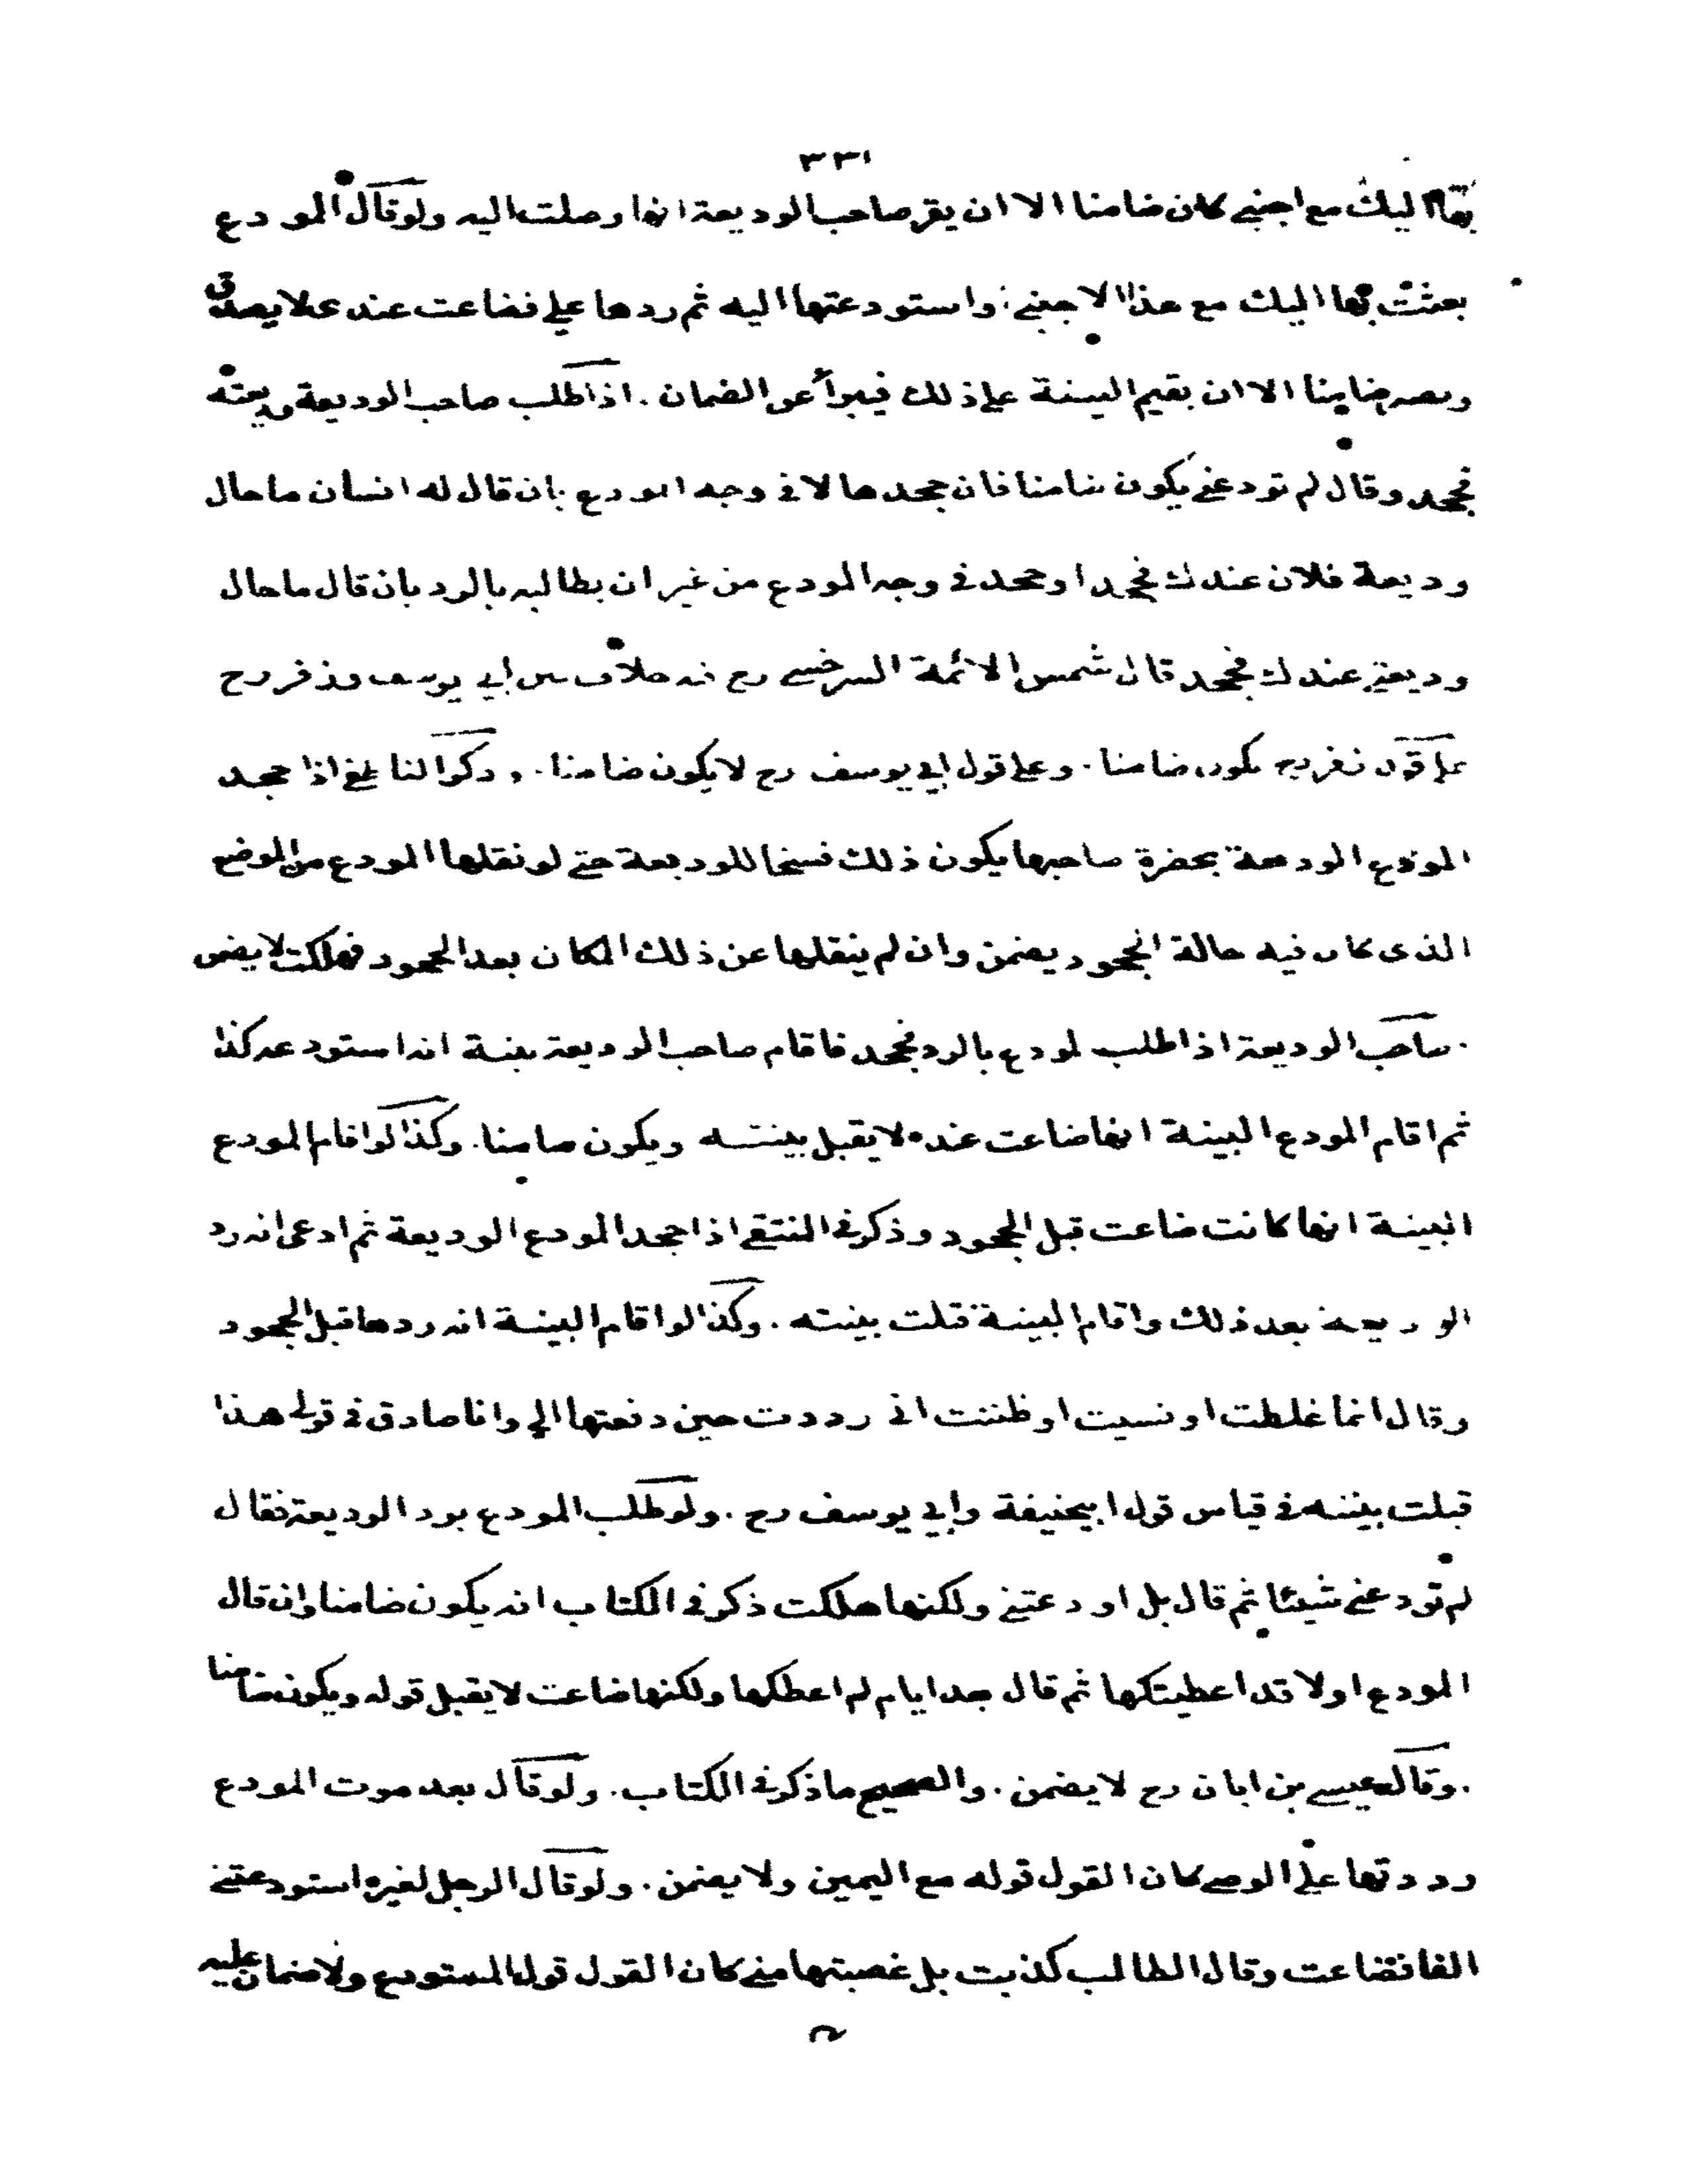 ٣٣١
بها اليك مع اجنبي كان ضامنا الا ان يقر صاحب الوديعة انها وصلت اليه ولو قال المودع
بعثت بها اليك مع هذا الاجنبي واستودعتها اليه ثم ردها علي فضاعت عندي لا يصدق
ويصير ضامنا الا ان يقيم البينة على ذلك فيبرأ عن الضمان . اذا طلب صاحب الوديعة وديعته
فجحد وقال لم تودعني يكون ضامنا فان جحدها لا في وجه المودع بان قال له انسان ما حال
وديعة فلان عندك فجحد او جحد في وجه المودع من غير ان يطالبه بالرد بان قال ما حال
وديعتي عندك فجحد قال شمس الائمة السرخسي رح فيه خلاف بين ابي يوسف وزفر رح
على قول زفر رح يكون ضامنا . وعلى قول ابي يوسف رح لا يكون ضامنا . وذكر الناطفي اذا جحد
المودع الوديعة بحضرة صاحبها يكون ذلك فسخا للوديعة حتى لو نقلها المودع من الموضع
الذي كان فيه حالة الجحود يضمن وان لم ينقلها عن ذلك المكان بعد الجحود فهلكت لا يضمن
. صاحب الوديعة اذا طلب المودع بالرد فجحد فاقام صاحب الوديعة بينة انه استودعه كذا
ثم اقام المودع البينة انها ضاعت عنده لا يقبل بينته ويكون ضامنا . وكذا لو اقام المودع
البينة انها كانت ضاعت قبل الجحود وذكر في المنتقى اذا جحد المودع الوديعة ثم ادعى انه رد
الوديعة بعد ذلك واقام البينة قبلت بينته . وكذا لو اقام البينة انه ردها قبل الجحود
وقال انما غلطت او نسيت او ظننت اني رددت حين دفعتها الي وانا صادق في قولي هذا
قبلت بينته في قياس قول ابيحنيفة وابي يوسف رح . ولو طلب المودع برد الوديعة فقال
لم تودعني شيئا ثم قال بل اودعتني ولكنها هلكت ذكر في الكتاب انه يكون ضامنا وان قال
المودع اولا قد اعطيتكها ثم قال بعد ايام لم اعطكها ولكنها ضاعت لا يقبل قوله ويكون ضامنا
. وقال عيسى بن ابان رح لا يضمن . والصحيح ما ذكر في الكتاب . ولو قال بعد موت المودع
رددتها على الوصي كان القول قوله مع اليمين ولا يضمن . ولو قال الرجل لغيره استودعتني
الفا فضاعت وقال الطالب كذبت بل غصبتها مني كان القول قول المستودع ولا ضمان عليه